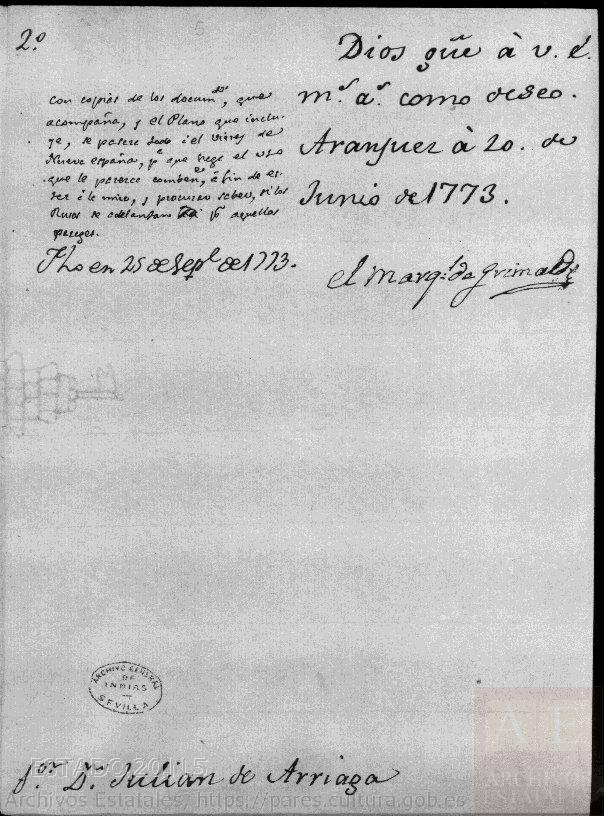 2.º
Dios gũe à v. é.
m.s a.s como deseo.
Aranjuez à 20. de
Junio de 1773.
el Marq.s de Grimaldi
con copias de los docum.tos, que
acompaña, y el Plano que inclu-
ye, se pasese todo àel Virrey de
Nueva españa, p.a que haga el uso
que le parezca comben.te, à fin de es-
tar à la mira, y procurar saber, si los
Rusos se adelantaron p.r aquellos
parages.
Fho en 25 de Sep.e de 1773.
ARCHIVO GENERAL
DE
INDIAS
SEVILLA
S.or D.n Julian de Arriaga
ESTADO 20\1\5
Archivos Estatales, https://pares.cultura.gob.es
AE
ARCHIVOS
ESTATALES